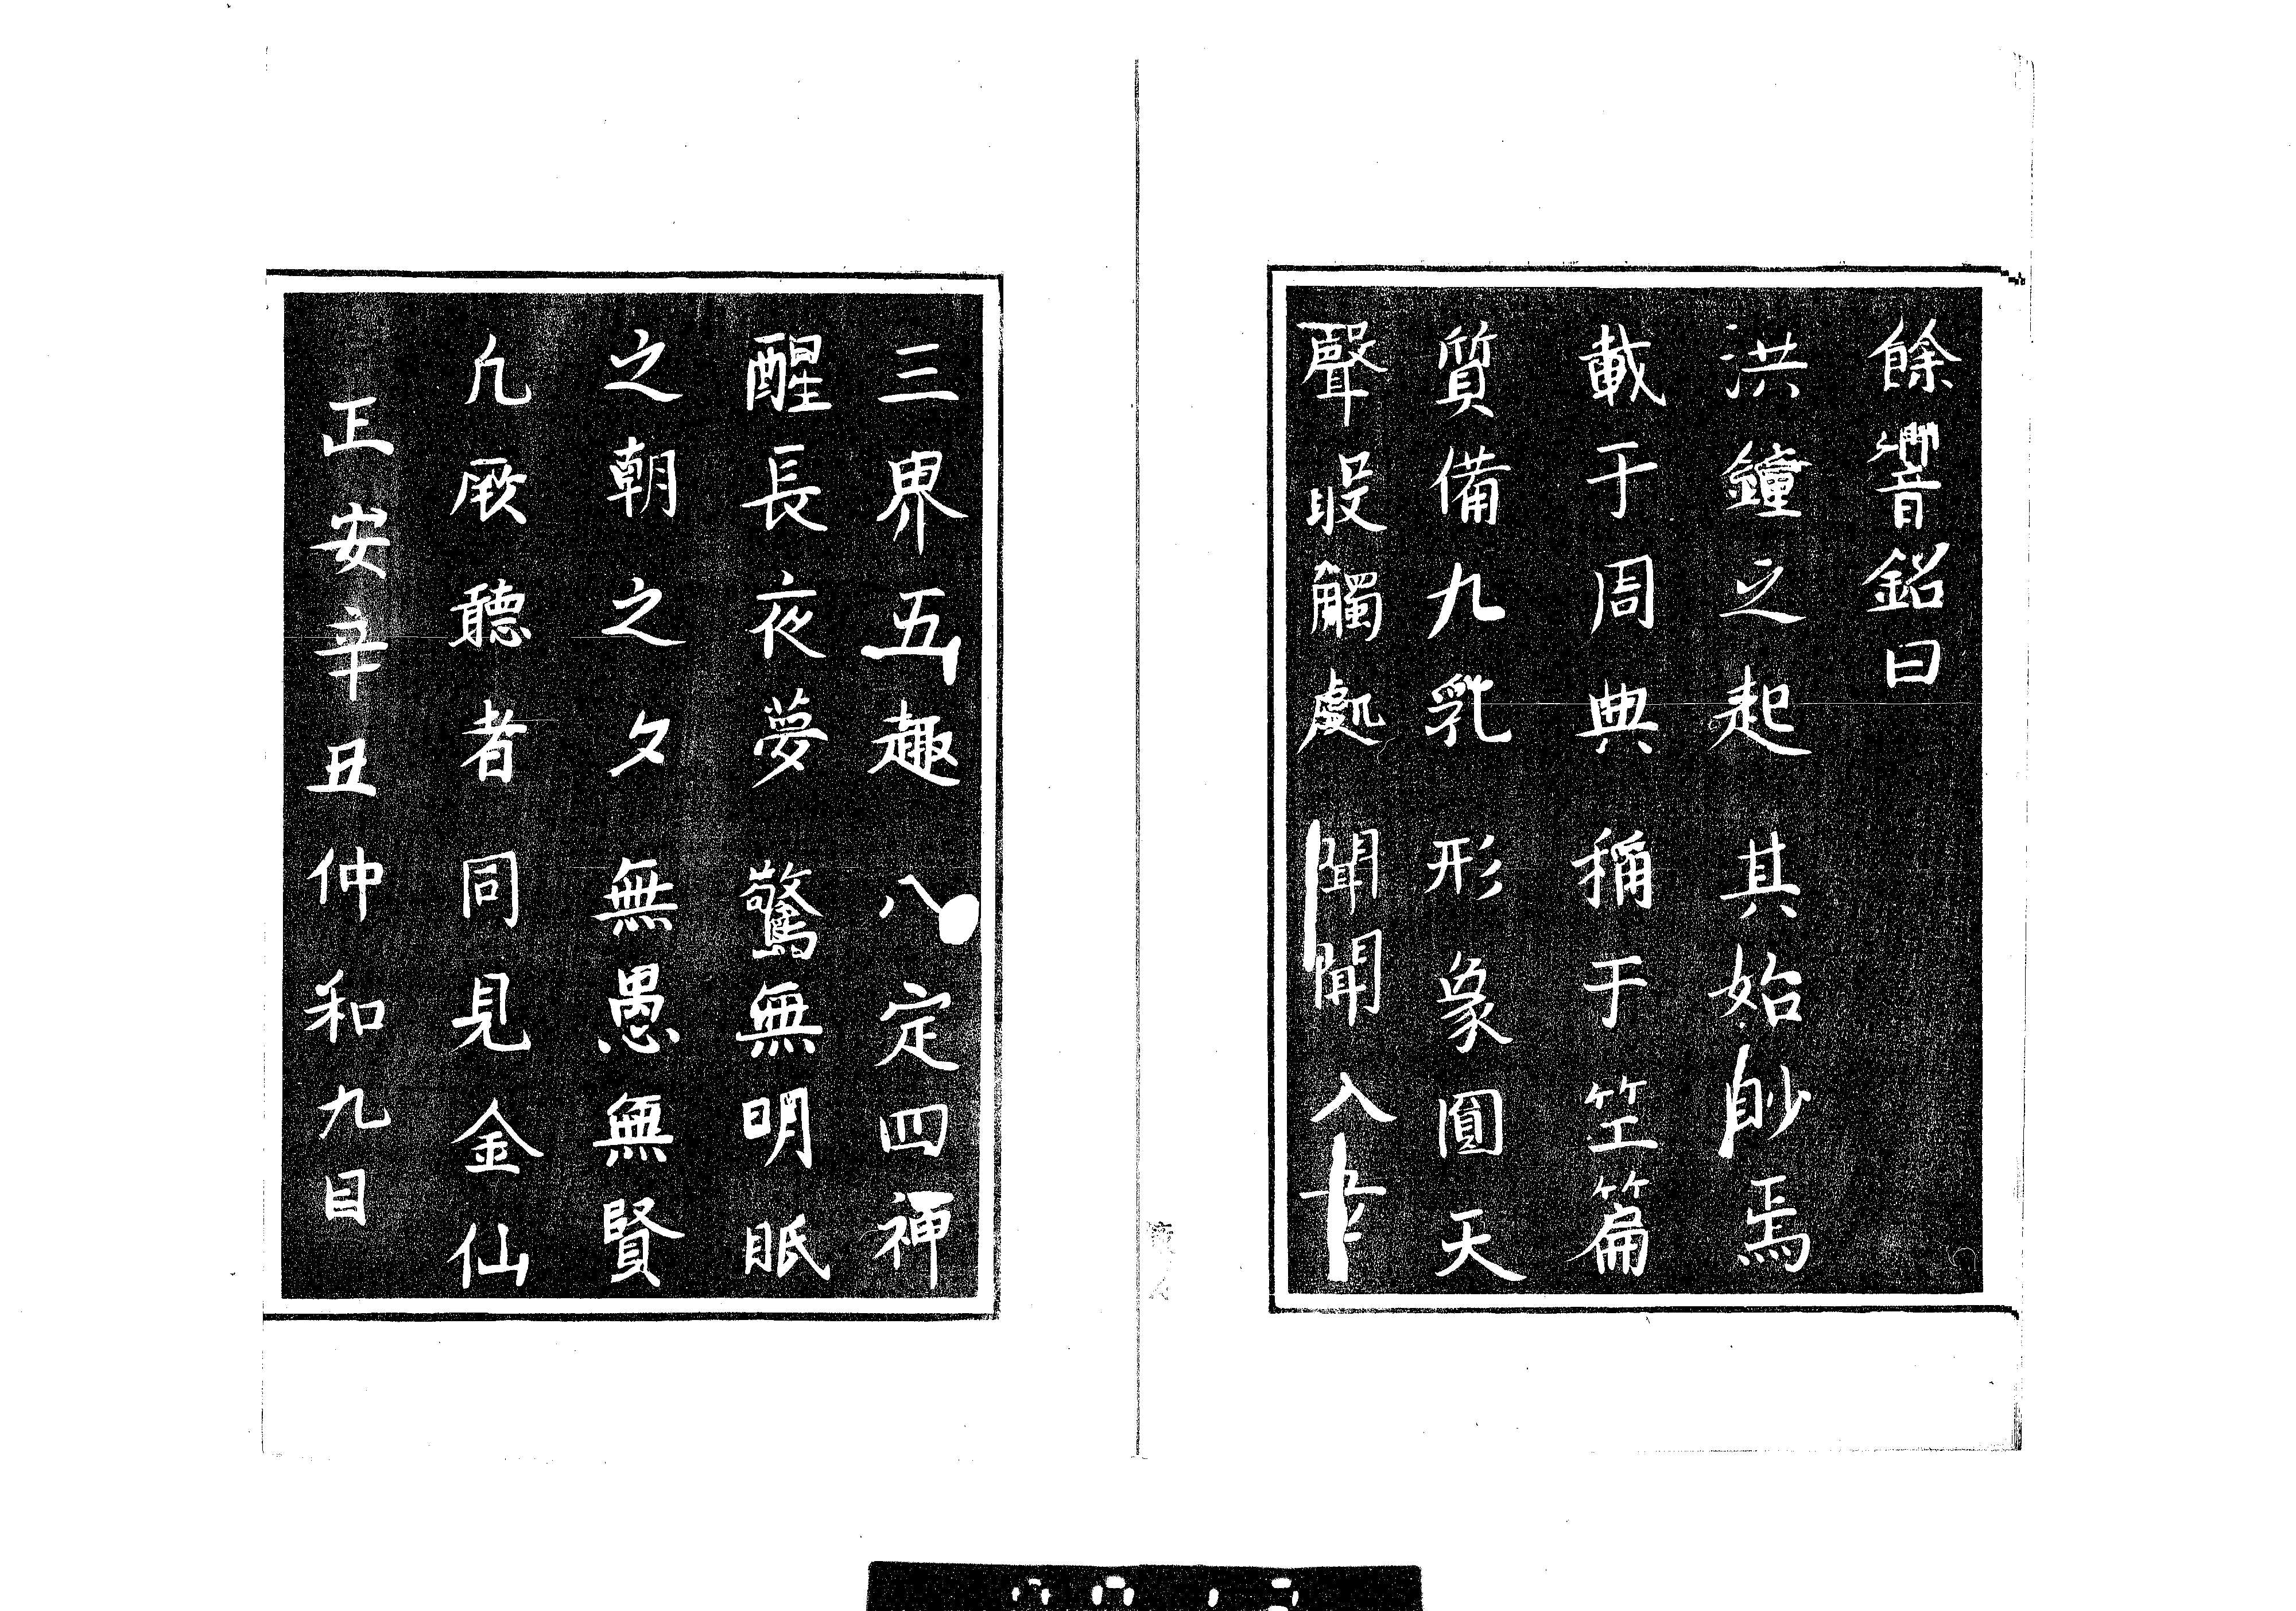 餘響銘曰
洪鐘之起 其始眇焉
載于周典 稱于竺篇
質備九乳 形象圓天
聲叚觸處 聞聞入
三界五趣 八定四禅
醒長夜夢 驚無明眠
之朝之夕 無愚無賢
凢厥聽者 同見金仙
正安辛丑仲和九日